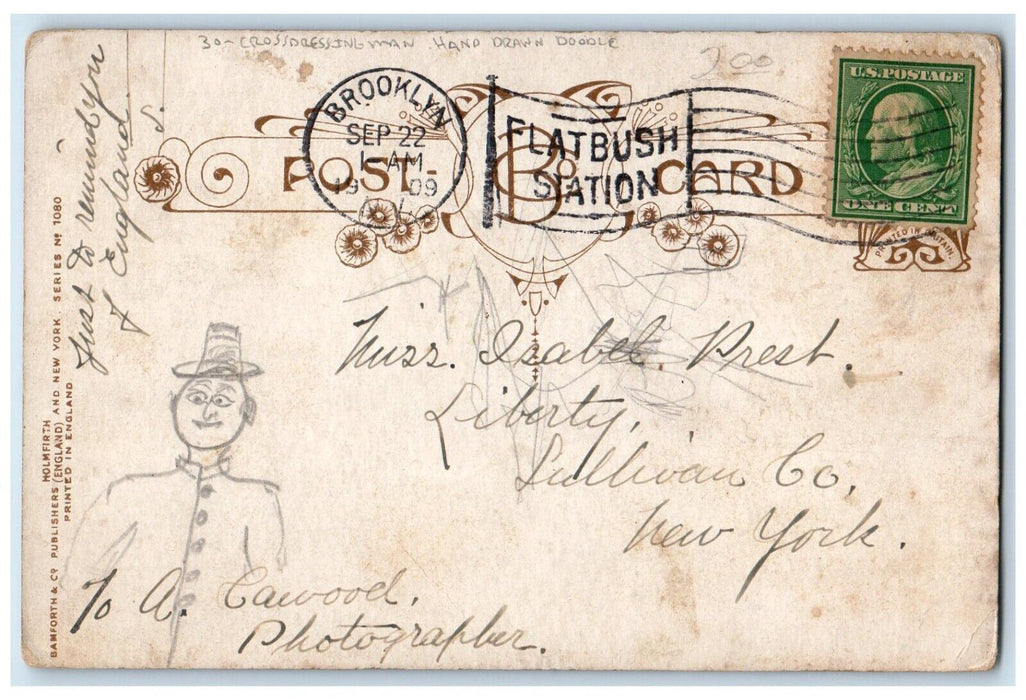 30- CROSSDRESSING MAN HAND DRAWN DOODLE
3 00
Just to remind you
of England.
S.
BROOKLYN
SEP 22
1 AM
19 09
FLATBUSH
STATION
POST CARD
U.S. POSTAGE
ONE CENT
PRINTED IN BRITAIN.
HOLMFIRTH
BAMFORTH & Co PUBLISHERS (ENGLAND) AND NEW YORK. SERIES No 1080
PRINTED IN ENGLAND
Miss. Isabel Prest.
Liberty,
Sullivan Co,
New York.
To A. Cawood,
Photographer.